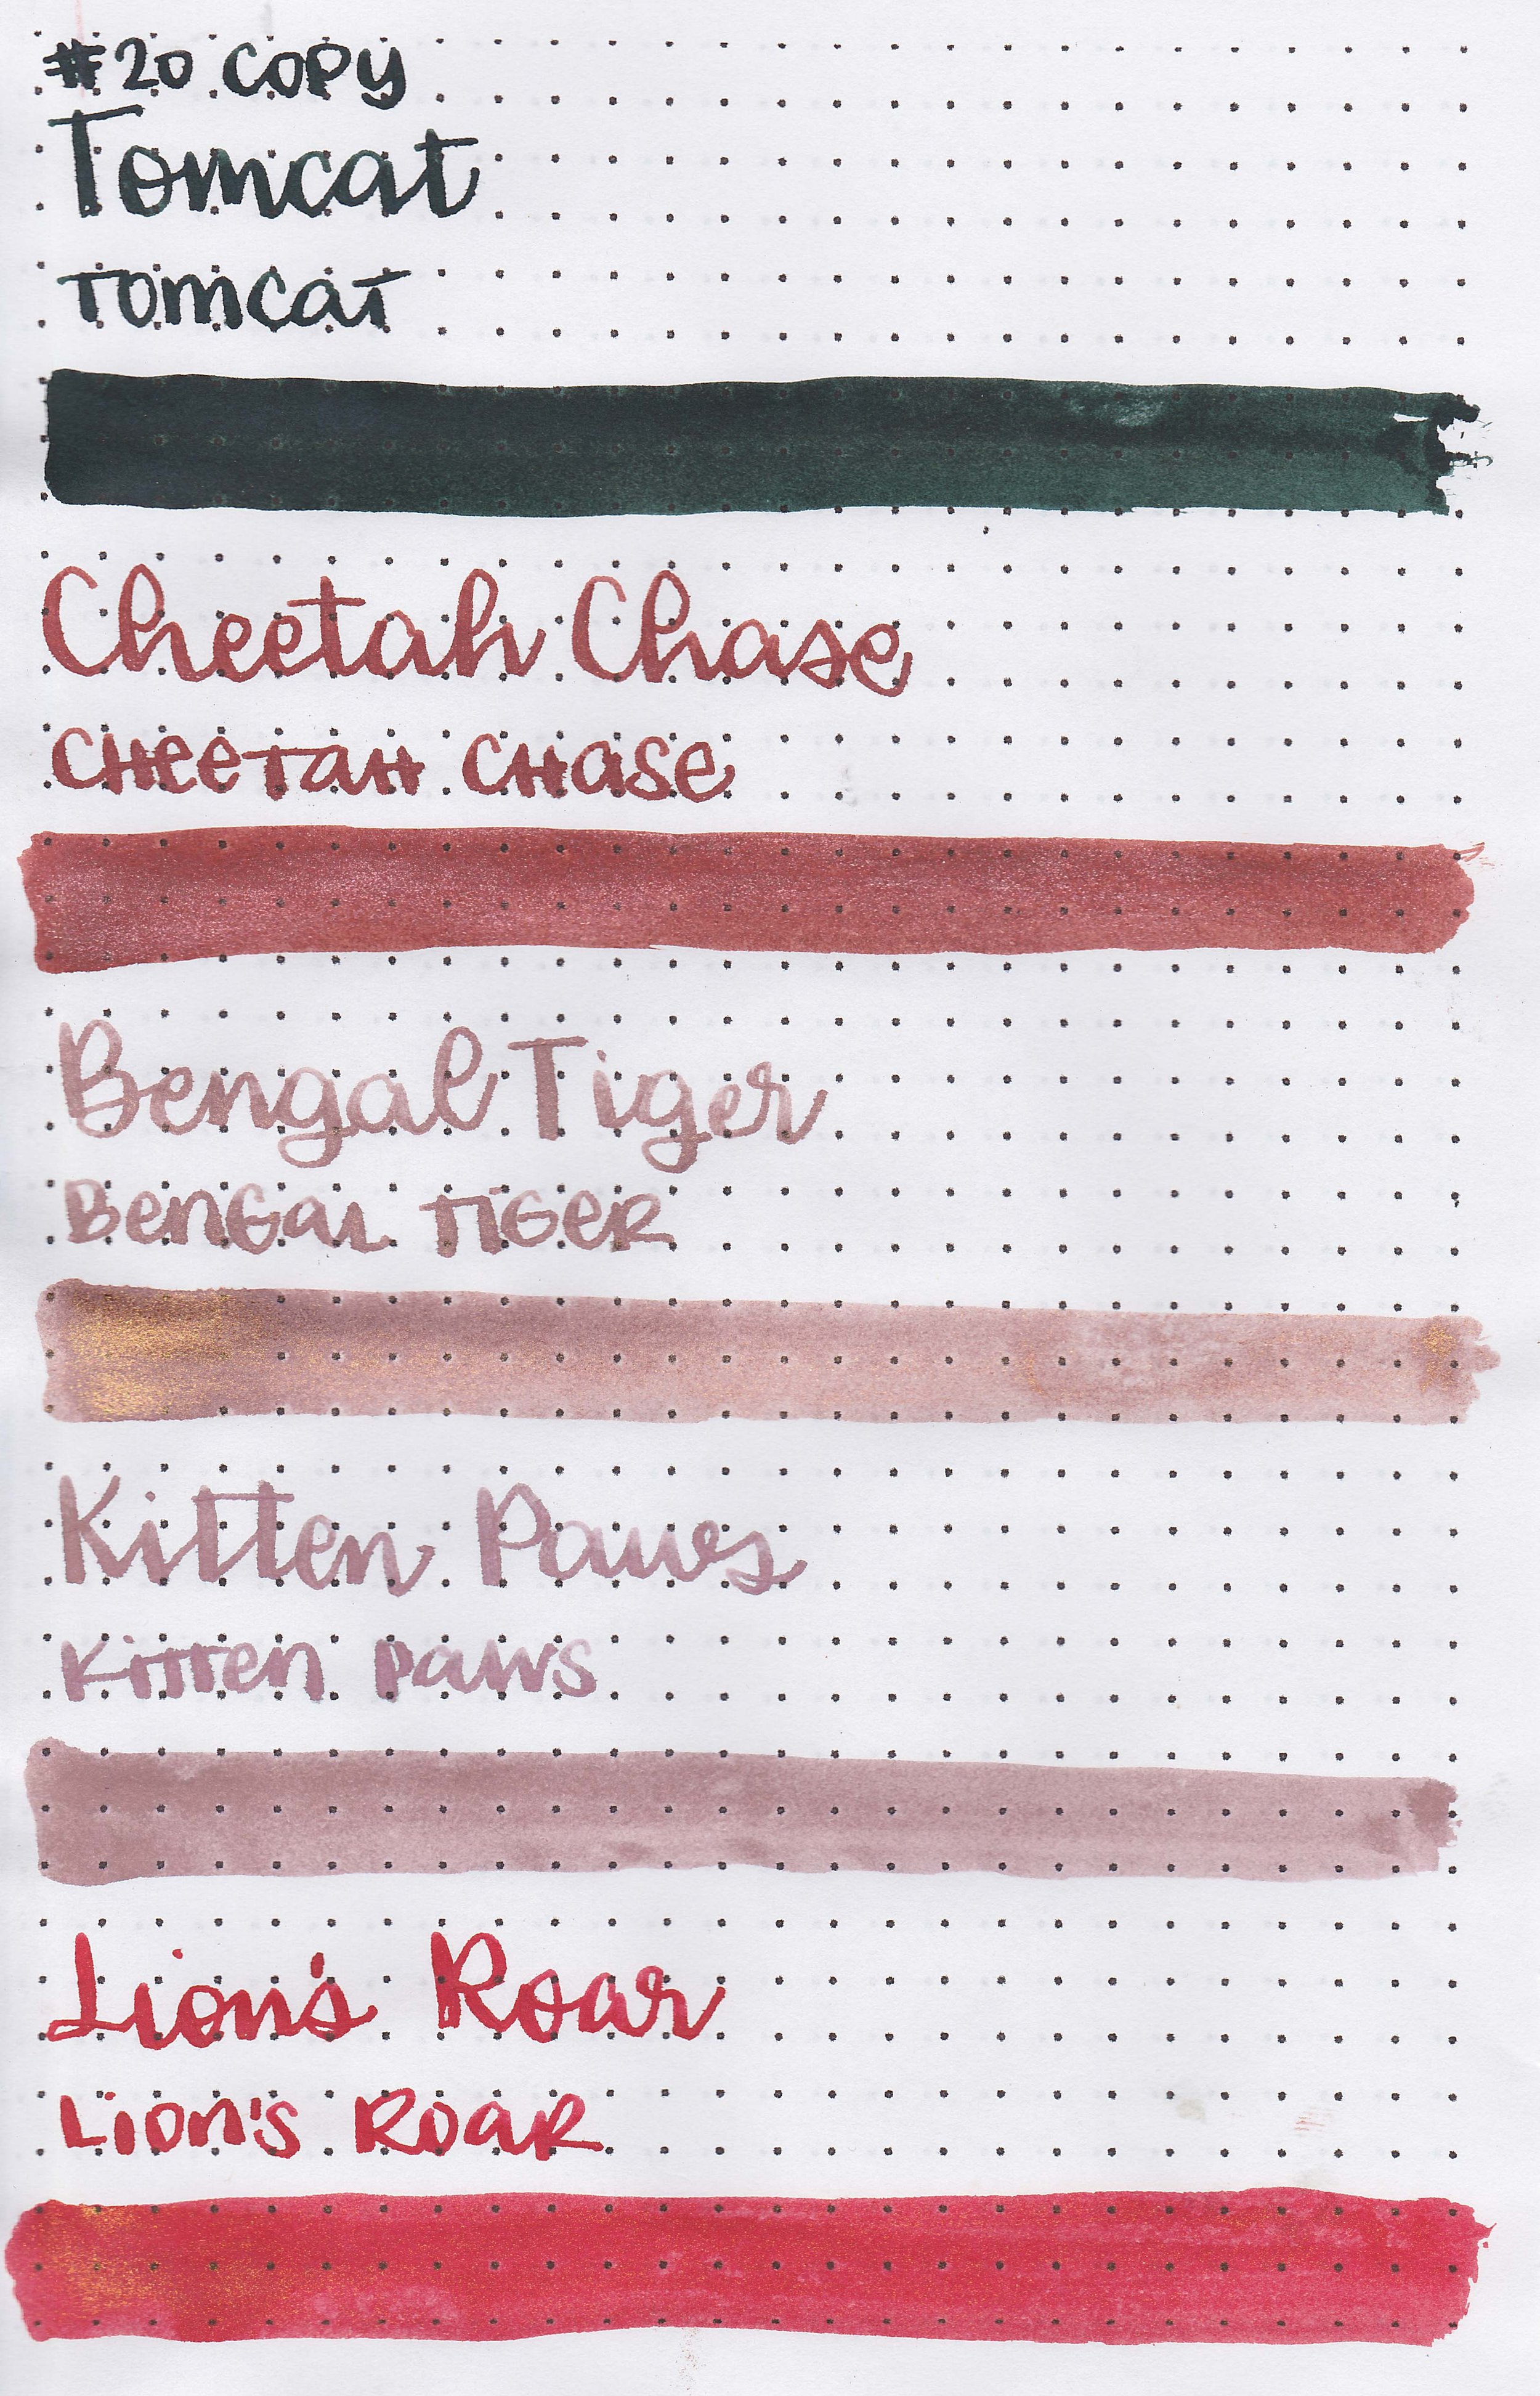 #20 COPY
Tomcat
Tomcat
Cheetah Chase
CHeeTaH CHase
Bengal Tiger
BenGaL TIGeR
Kitten Paws
KiTTen Paws
Lion's Roar
Lion's RoaR